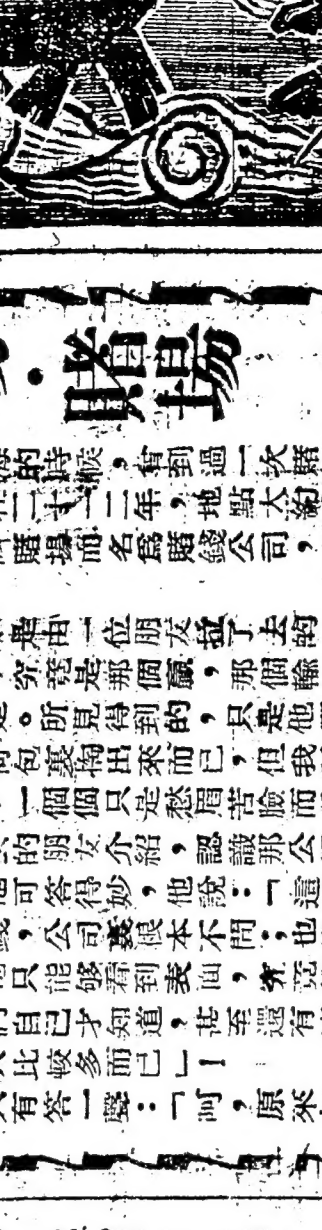 ・賭場
的時候，曾到過一次賭
二十一二年，地點大約
賭場而名爲賭錢公司，
是由一位朋友拉了去的
究竟是那個贏，那個輸
。所見得到的，只是他
包裹掏出來而已，但我
一個個只是愁眉苦臉而
的朋友介紹，認識那公
可答得妙，他說：「這
，公司裏根本不問；也
只能够看到表面，究竟
們自已才知道，甚至還有
比較多而已」！
有答一聲：「呵，原來